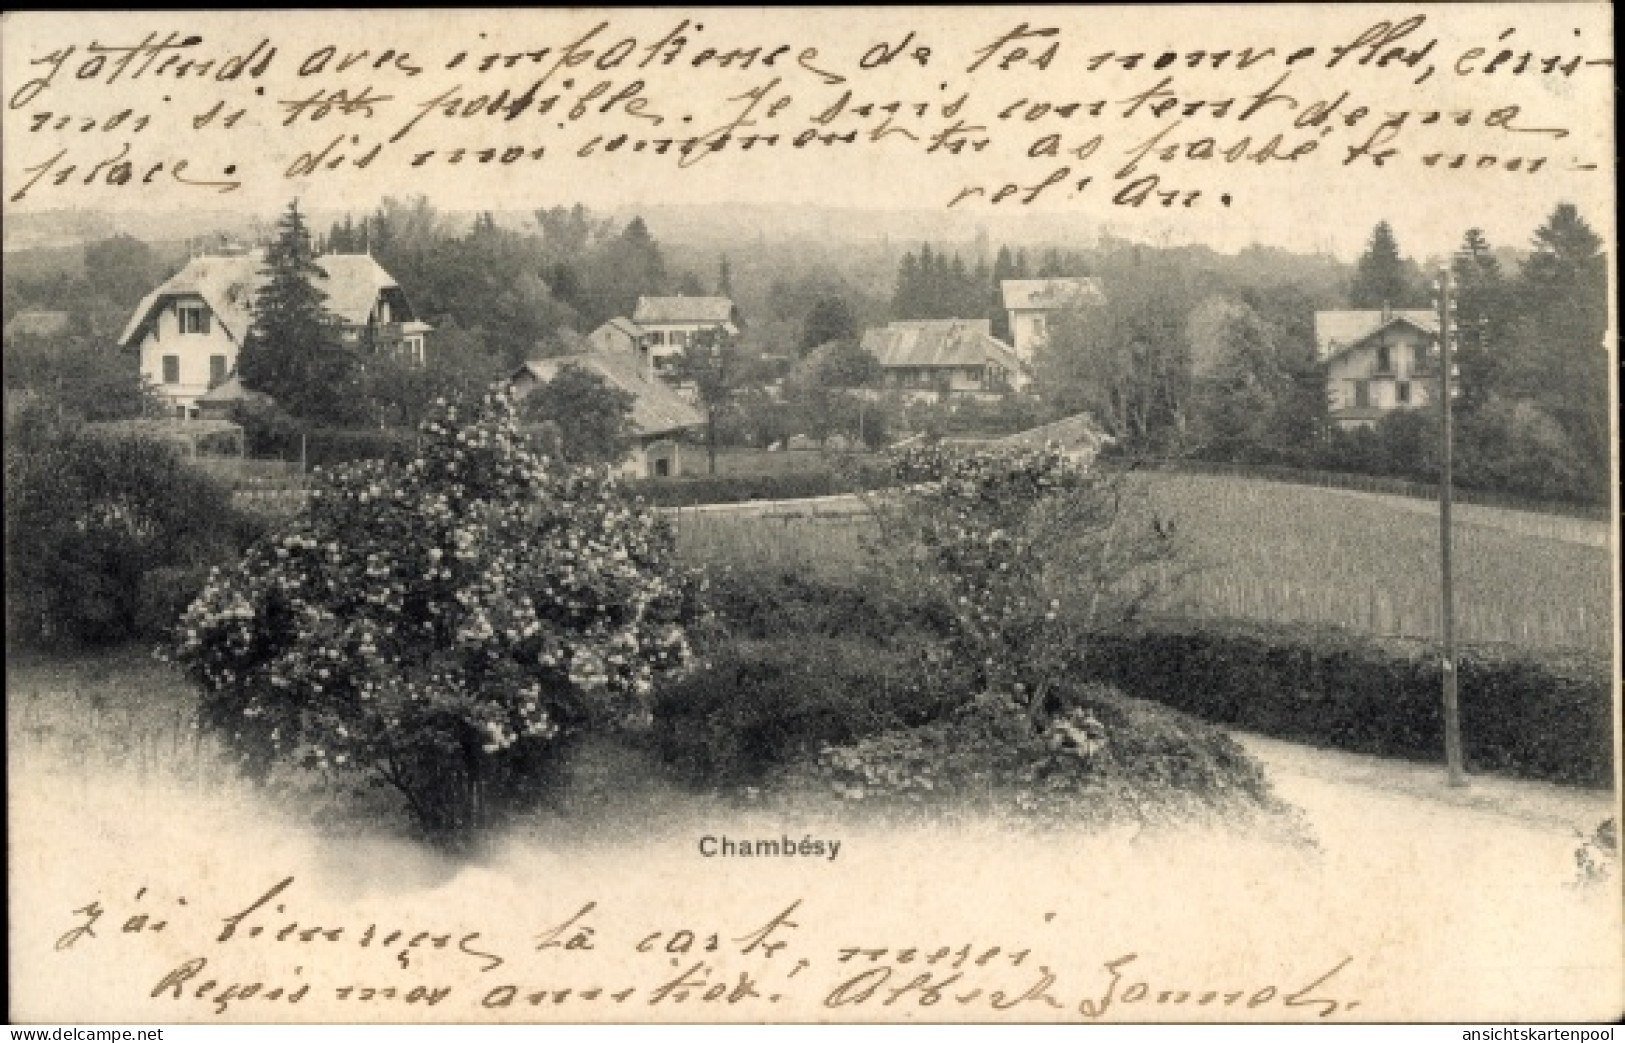 j'attends avec impatience de tes nouvelles, écris-
moi si tôt possible. Je suis content de ma
place. dis moi comment tu as passé le nou-
vel' An.
Chambésy
j'ai bien reçue ta carte, merci
Reçois mes amitiés. Albert Gonnet.
www.delcampe.net
ansichtskartenpool